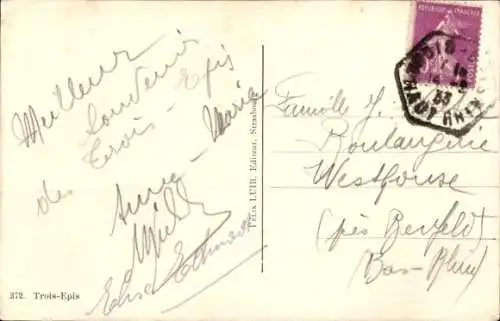 Meilleur
Souvenir
des Trois-Epis
Anne-Marie
372. Trois-Epis
FÉLIX LUIB, Editeur, Strasbourg
REPUBLIQUE FRANÇAISE
33
HAUT RHIN
Famille J.
Boulangerie
Westhouse
(près Benfeld)
(Bas-Rhin)